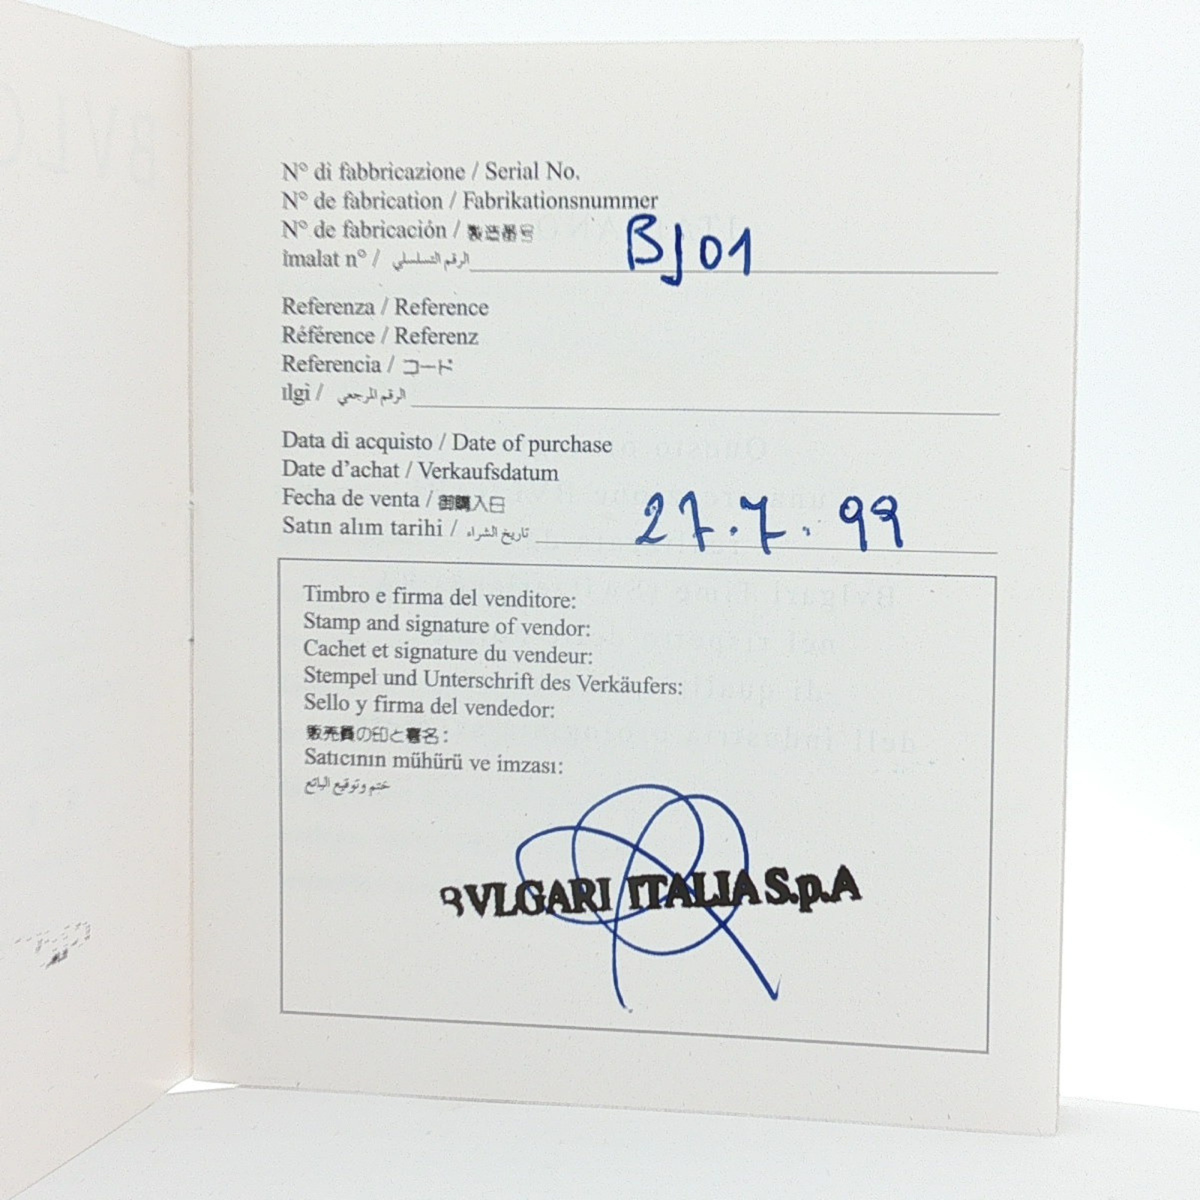 N° di fabbricazione / Serial No.
N° de fabrication / Fabrikationsnummer
N° de fabricación / 製造番号
imalat n° / الرقم التسلسلي BJ01
Referenza / Reference
Référence / Referenz
Referencia / コード
ılgi / الرقم المرجعي
Data di acquisto / Date of purchase
Date d'achat / Verkaufsdatum
Fecha de venta / 御購入日
Satın alım tarihi / تاريخ الشراء 27.7.99
Timbro e firma del venditore:
Stamp and signature of vendor:
Cachet et signature du vendeur:
Stempel und Unterschrift des Verkäufers:
Sello y firma del vendedor:
販売員の印と署名:
Satıcının mühürü ve imzası:
ختم وتوقيع البائع
BVLGARI ITALIA S.p.A